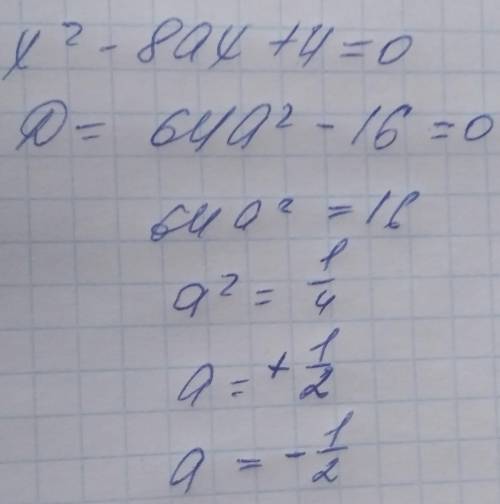 x² - 8ax + 4 = 0
D = 64a² - 16 = 0
64a² = 16
a² = 1/4
a = + 1/2
a = - 1/2